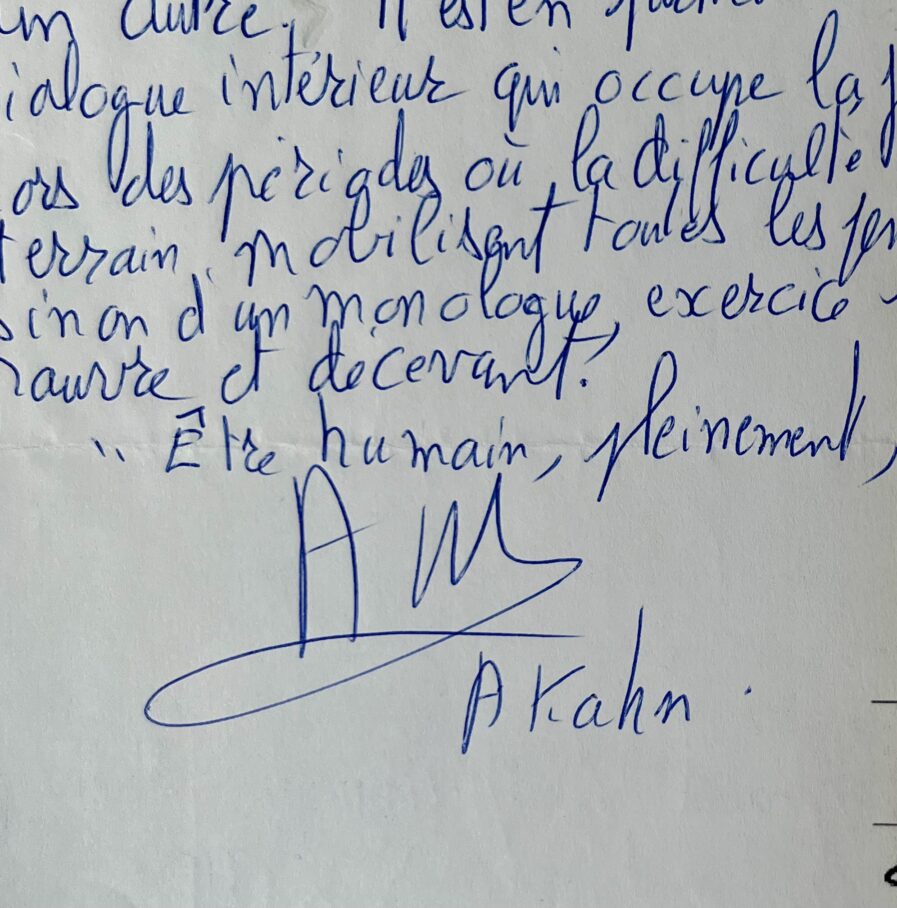 un autre. Il est en
ialogue intérieur qui occupe la
ors des périodes où la difficulté
terrain mobilisent toutes les
sinon d'un monologue, exercice
pauvre et décevant?
" Être humain, pleinement,
A Kahn.